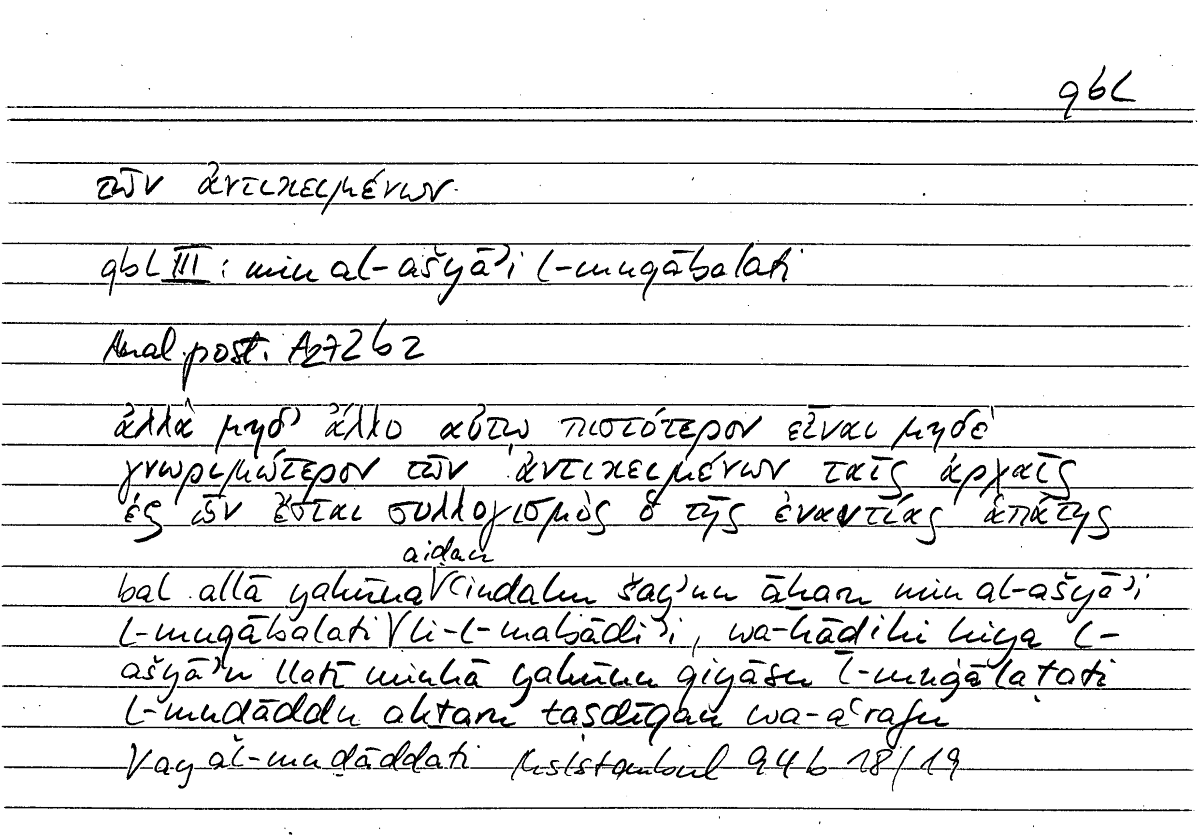 qbl
τῶν ἀντικειμένων.
qbl III: min al-ašyāʾi l-muqābalati
Anal. post. A2 72b2
ἀλλὰ μηδ' ἄλλο αὐτῷ πιστότερον εἶναι μηδὲ
γνωριμώτερον τῶν ἀντικειμένων ταῖς ἀρχαῖς
ἐξ ὧν ἔσται συλλογισμὸς ὁ τῆς ἐναντίας ἀπάτης
aiḍan
bal allā yakūna ʿindahu šayʾun āḫaru min al-ašyāʾi
l-muqābalati li-l-mabādiʾi, wa-hāḏihi hiya l-
ašyāʾu llatī minhā yakūnu qiyāsu l-muġālaṭati
l-muḍāddu akṯaru taṣdīqan wa-aʿrafu
al-muḍāddati Hs Istanbul 94b 18/19